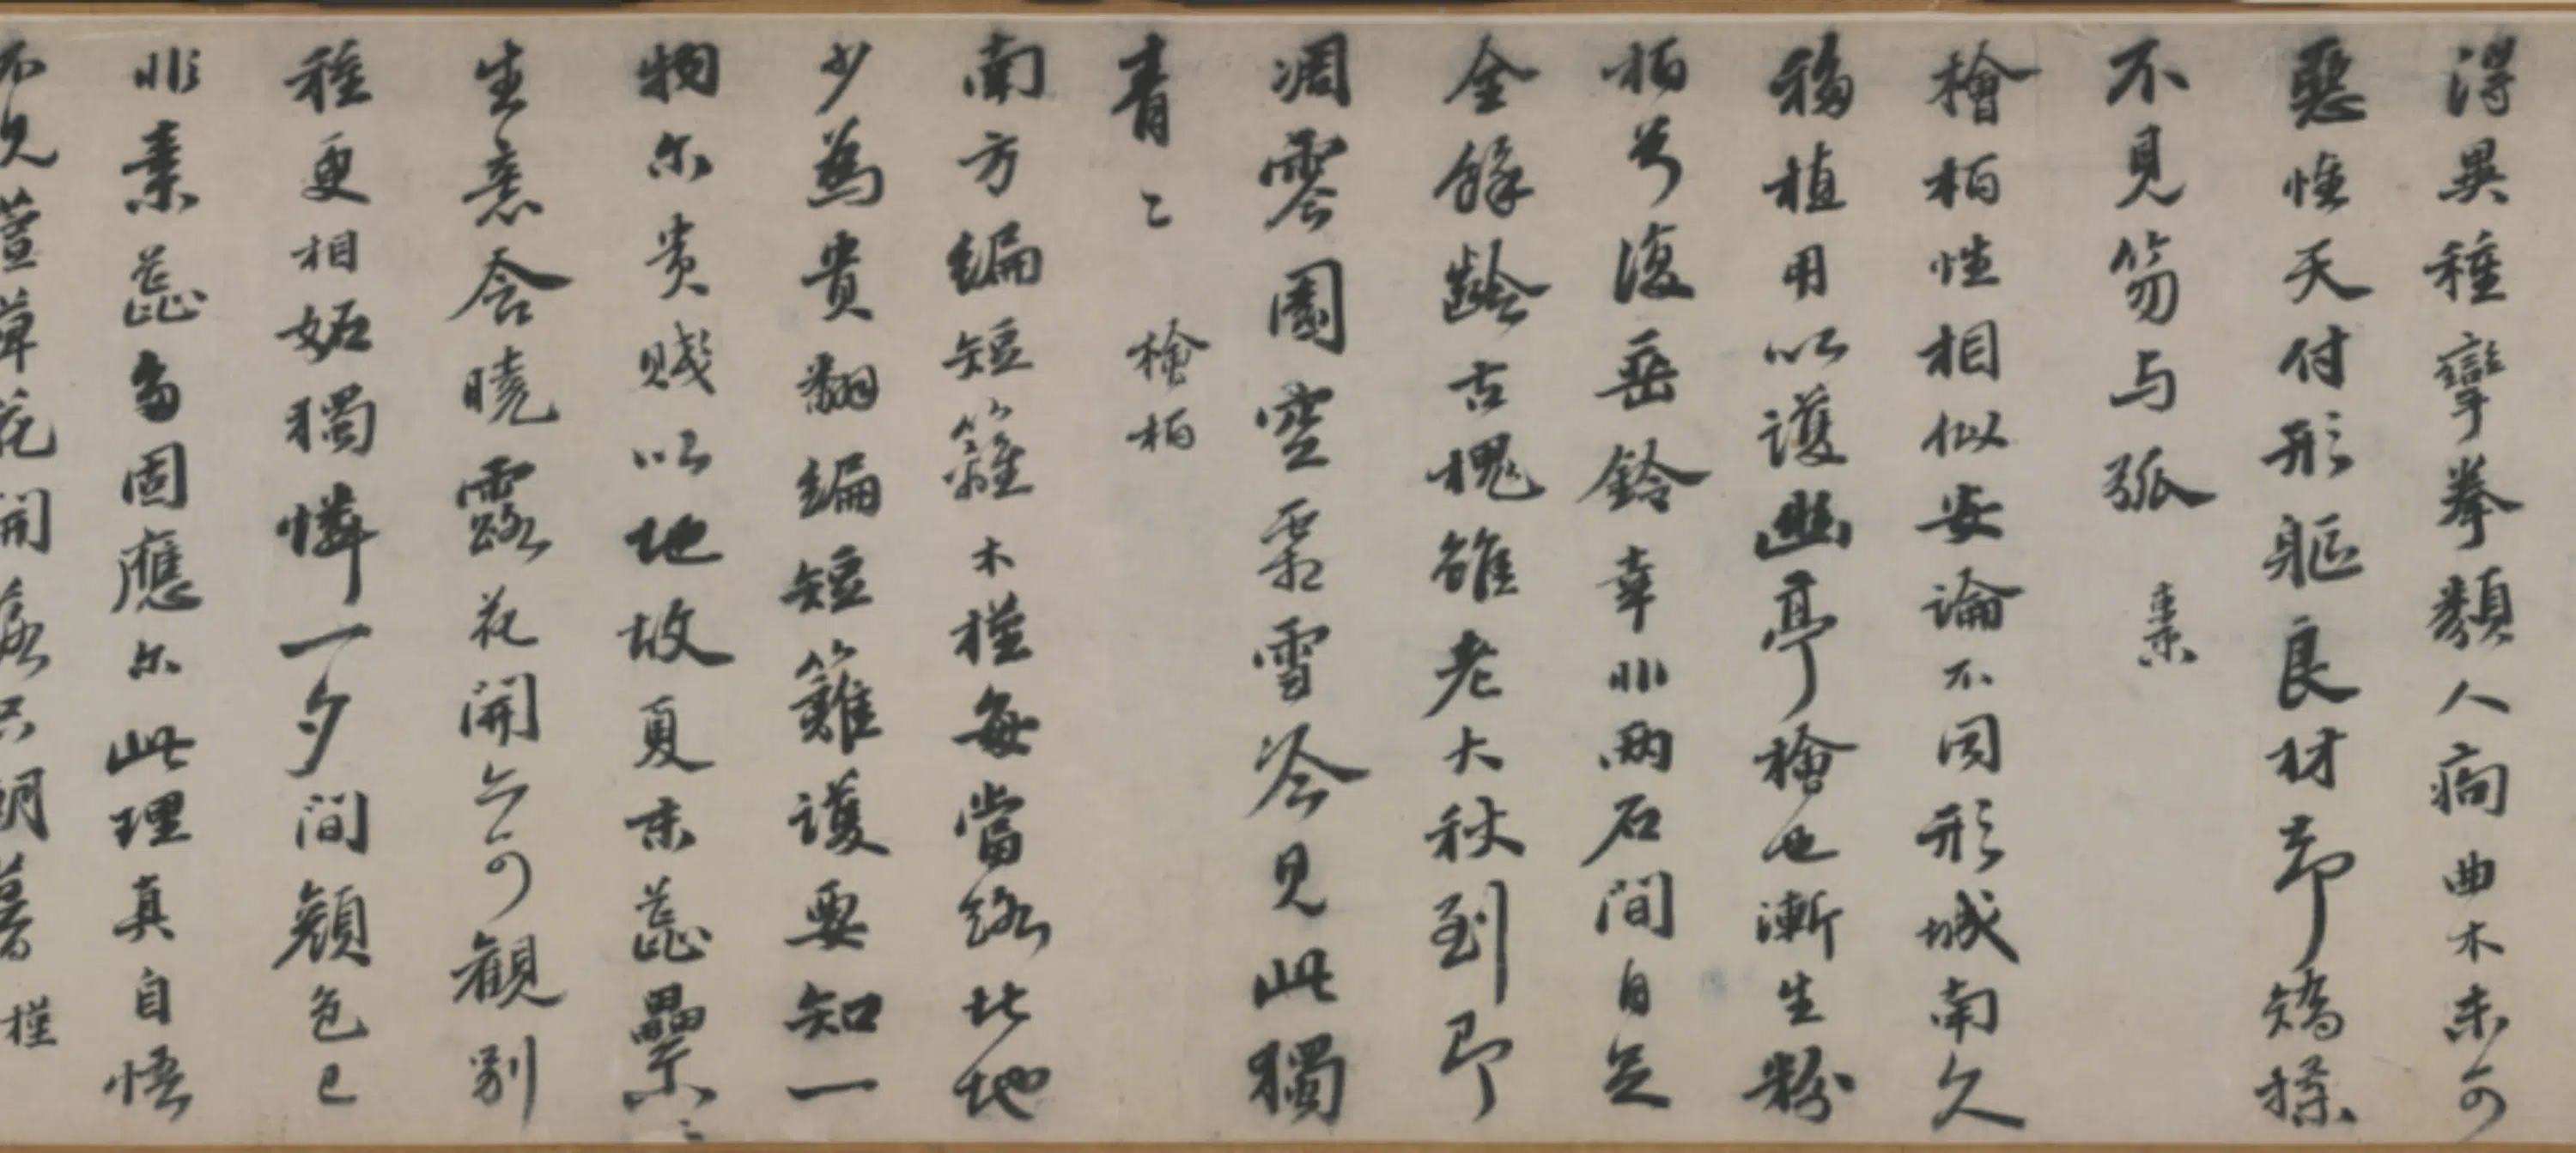 得異種攣拳類人痀曲木未可
惡惟天付形軀良材却矯揉
不見笏与弧 棗
檜柏性相似安論不同形城南久
移植用以護幽亭檜也漸生粉
柏兮復垂鈴幸非兩石間自足
全餘齡古槐雖老大秋到即
凋零園空霜雪冷見此獨
青〻 檜柏
南方編短籬木槿每當路北地
少為貴翻編短籬護要知一
物尔貴賤以地故夏末蕊纍〻
生意含曉露花開亦可觀別
種更相妬獨憐一夕間顏色已
非素蕊多固應尔此理真自悟
不見萱草花開落只朝暮 槿